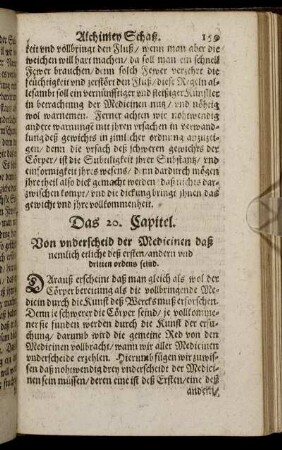 Alchimey Schatz. 159
keit vnd vollbringt den Fluß / wenn man aber die
weichen will hart machen / da soll man ein schnell
Fewer brauchen / denn solch Fewer verzehrt die
feüchtigkeit vnd zerstört den Fluß / diese Regeln al-
lesamt soll ein vernünfftiger vnd fleissiger Künstler
in betrachung der Medicinen nutz / vnd nöhtig
wol warnemen. Ferner achten wir nohtwendig
andere warnunge mit jhren vrsachen in verwand-
lung deß gewichts in zimlicher ordnung anzuzei-
gen / denn die vrsach deß schweren gewichts der
Cörper / ist die Subtiligkeit jhrer Substantz / vnd
einformigkeit jhres wesens / denn dardurch mögen
jhre theil also dick gemacht werden / daß nichts dar-
zwischen kompt / vnd die dickung bringt jhnen das
gewicht vnd jhre vollkommenheit.
Das 20. Capitel.
Von vnderscheid der Medicinen daß
nemlich etliche deß ersten / andern vnd
dritten ordens seind.
DArauß erscheint daß man gleich als wol der
Cörper bereitung als die vollbringende Me-
dicin durch die Kunst deß Wercks muß erforschen.
Denn je schwerer die Cörper seind / je vollkomme-
ner sie funden werden durch die Kunst der ersu-
chung / darumb wird die gemeine Red von den
Medicinen vollbracht / wann wir aller Medicinen
vnderscheide erzehlen. Hierumb fügen wir zuwis-
sen daß nohtwendig drey vnderscheid der Medici-
nen sein müssen / deren eine ist deß Ersten / eine deß
andern /